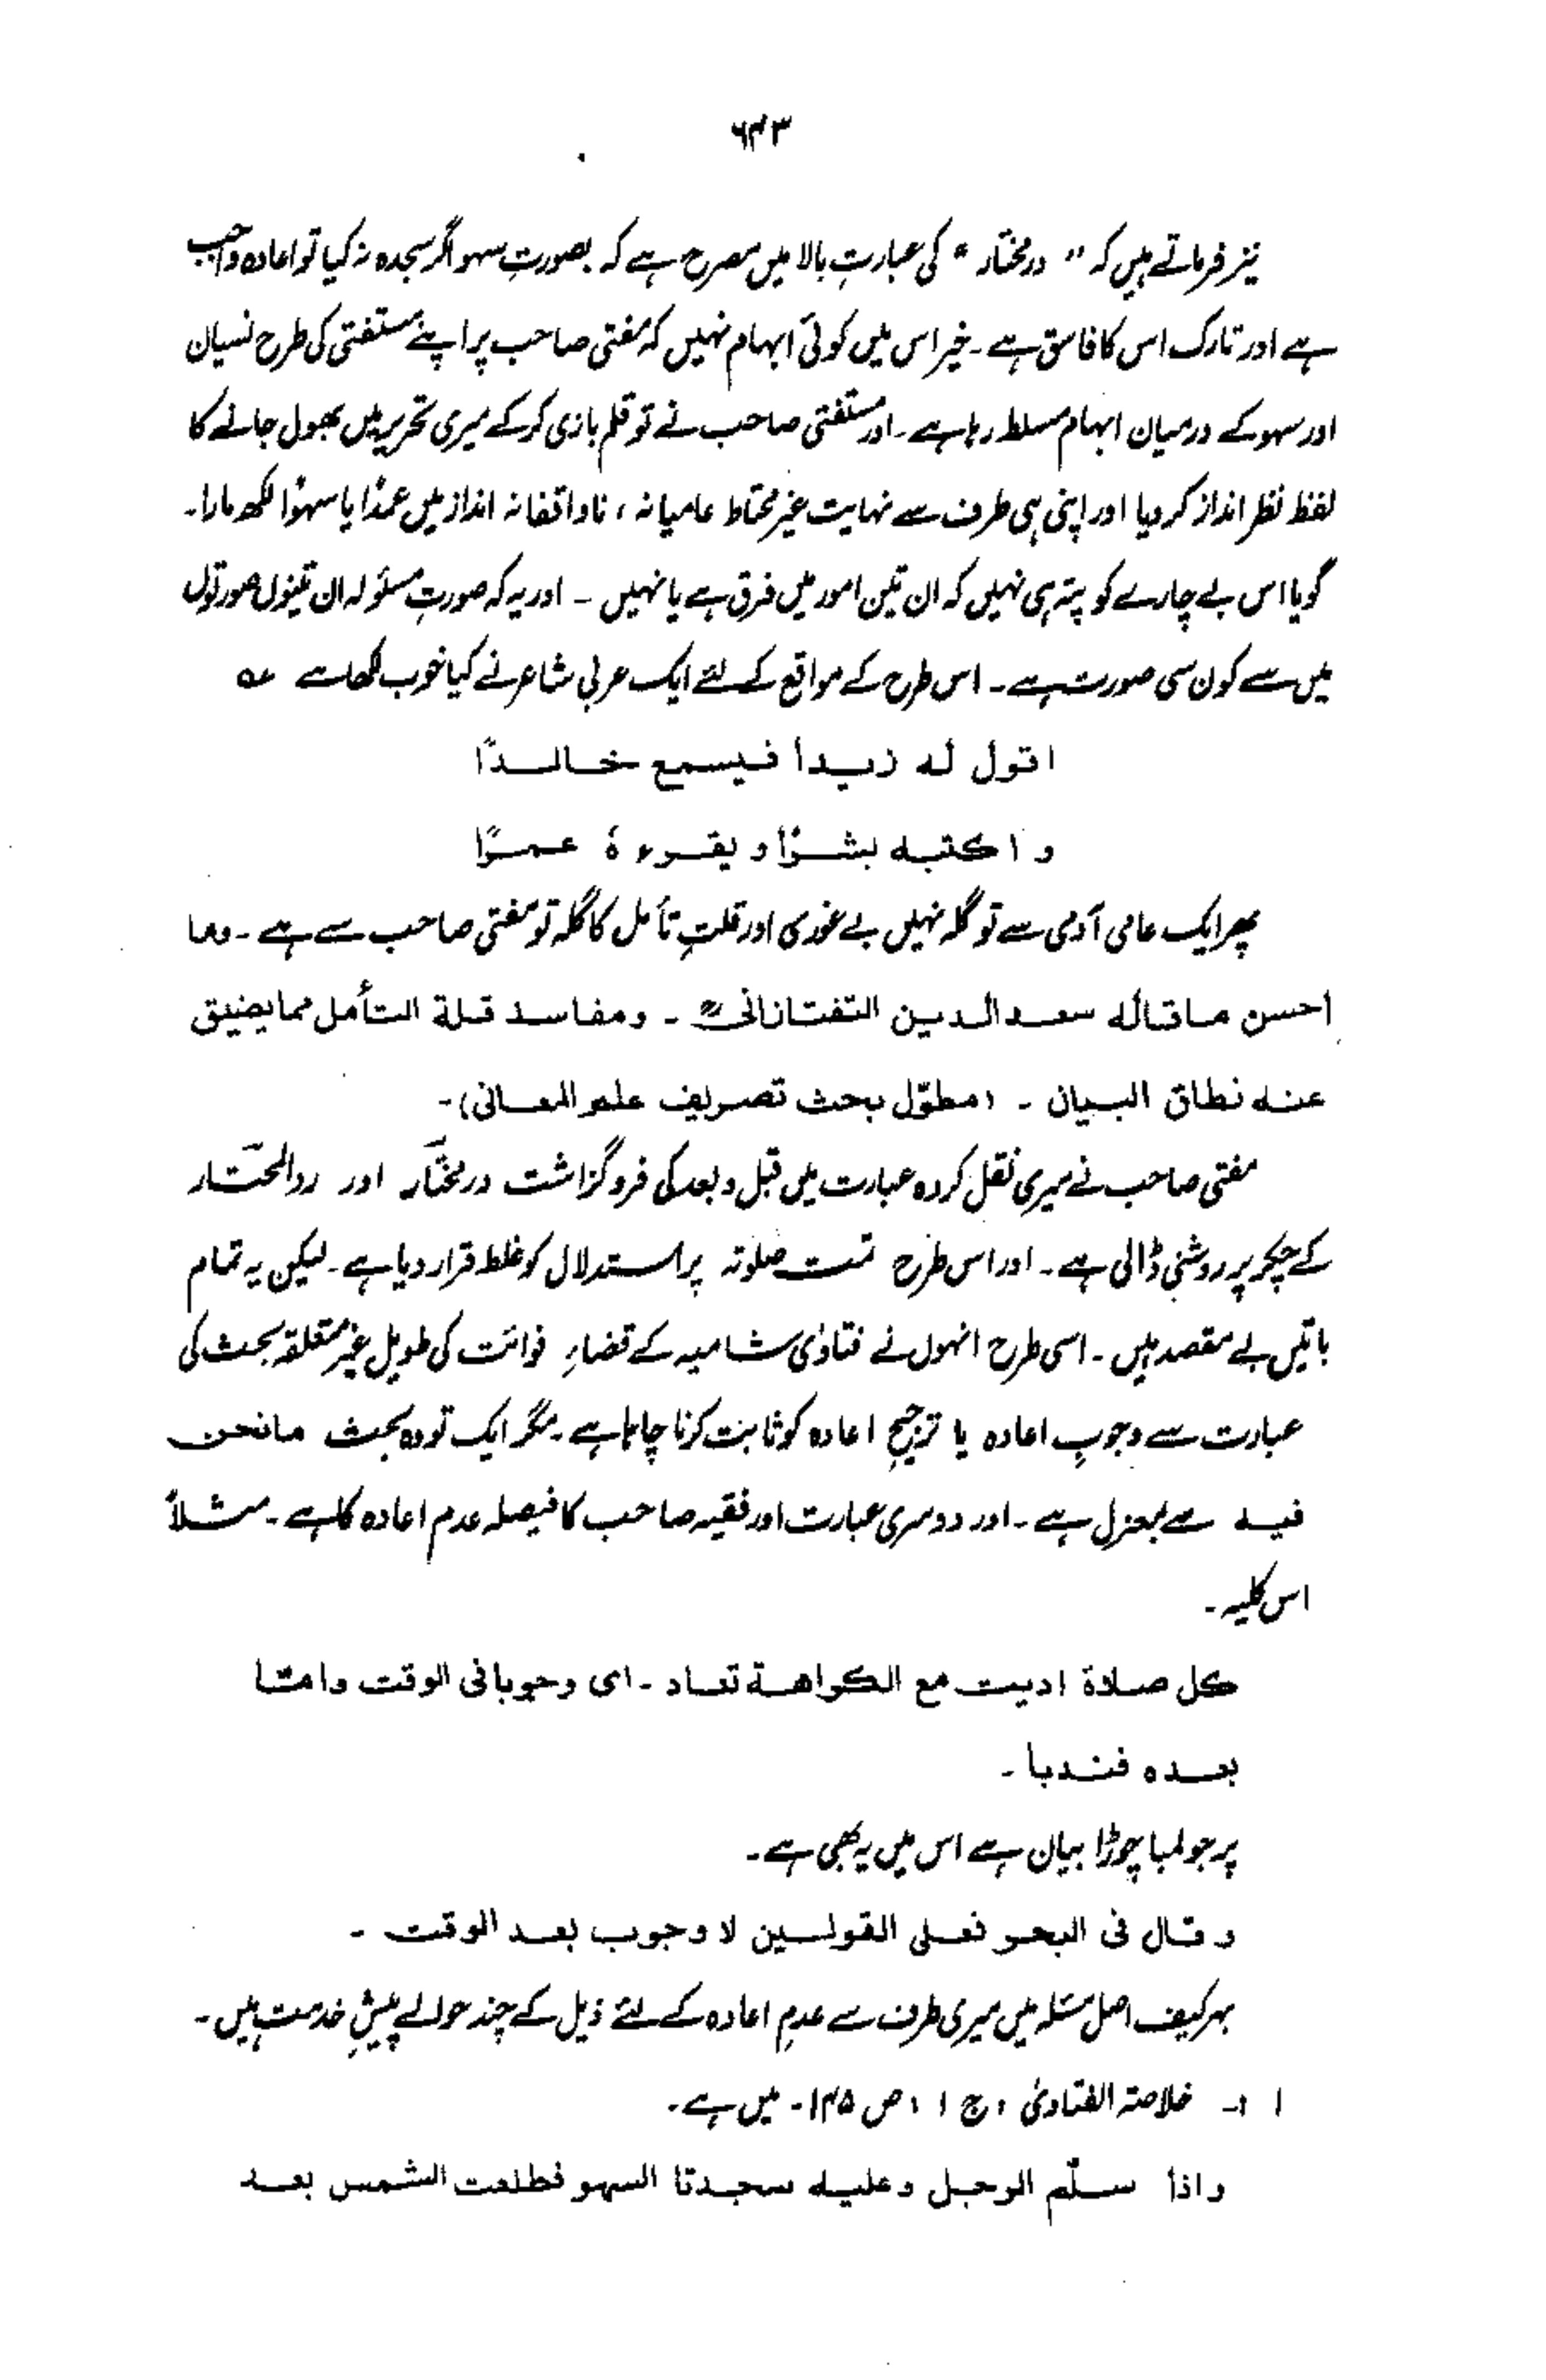 ۶۴۳
نیز فرماتے ہیں کہ " درمختار " کی عبارتِ بالا میں مصرح ہے کہ بصورتِ سہو اگر سجدہ نہ کیا تو اعادہ واجب
ہے اور تارک اس کا فاسق ہے ۔ خیر اس میں کوئی ابہام نہیں کہ مفتی صاحب پر اپنے مستفتی کی طرح نسیان
اور سہو کے درمیان ابہام مسلط رہا ہے ۔ اور مستفتی صاحب نے تو قلم بازی کرکے میری تحریر میں بھول جانے کا
لفظ نظر انداز کر دیا اور اپنی ہی طرف سے نہایت غیر محتاط عامیانہ ، ناواقفانہ انداز میں عمدًا یا سہوًا لکھ مارا۔
گویا اس بے چارے کو پتہ ہی نہیں کہ ان تین امور میں فرق ہے یا نہیں ۔ اور یہ کہ صورتِ مسئولہ ان تینوں صورتوں
میں سے کون سی صورت ہے ۔ اس طرح کے مواقع کے لئے ایک عربی شاعر نے کیا خوب لکھا ہے ؎
اقول له زيدا فيسمع خالدًا
و اكتبه بشرًا و يقرءهٗ عمرًا
پھر ایک عامی آدمی سے تو گلہ نہیں بے غوری اور قلتِ تأمل کا گلہ تو مفتی صاحب سے ہے ۔ وما
احسن ما قاله سعد الدين التفتازانیؒ ۔ ومفاسد قلة التأمل مما يضيق
عنه نطاق البيان ۔ (مطوّل بحث تصريف علم المعانی)۔
مفتی صاحب نے میری نقل کردہ عبارت میں قبل و بعد کی فروگزاشت درمختار اور ردالمحتار
کے چکر پر روشنی ڈالی ہے ۔ اور اس طرح تمت صلوتہ پر استدلال کو غلط قرار دیا ہے ۔ لیکن یہ تمام
باتیں بے مقصد ہیں ۔ اسی طرح انہوں نے فتاوٰی شامیہ کے قضاءِ فوائت کی طویل غیر متعلقہ بحث کی
عبارت سے وجوبِ اعادہ یا ترجیحِ اعادہ کو ثابت کرنا چاہا ہے ۔ مگر ایک تو وہ بحث مانحن
فیه سے بمعزل ہے ۔ اور دوسری عبارت اور فقیہ صاحب کا فیصلہ عدم اعادہ کا ہے ۔ مثلاً
اس کلیہ ۔
كل صلاة اديت مع الكراهة تعاد ۔ ای وجوبا فی الوقت واما
بعده فندبا ۔
پر جو لمبا چوڑا بیان ہے اس میں یہ بھی ہے ۔
و قال فی البحر فعلی القولين لا وجوب بعد الوقت ۔
بہرکیف اصل مسئلہ میں میری طرف سے عدمِ اعادہ کے لئے ذیل کے چند حوالے پیشِ خدمت ہیں ۔
۱ :۔ خلاصۃ الفتاویٰ ، ج ۱ ، ص ۱۴۵ ۔ میں ہے ۔
واذا سلّم الرجل وعليه سجدتا السهو فطلعت الشمس بعد